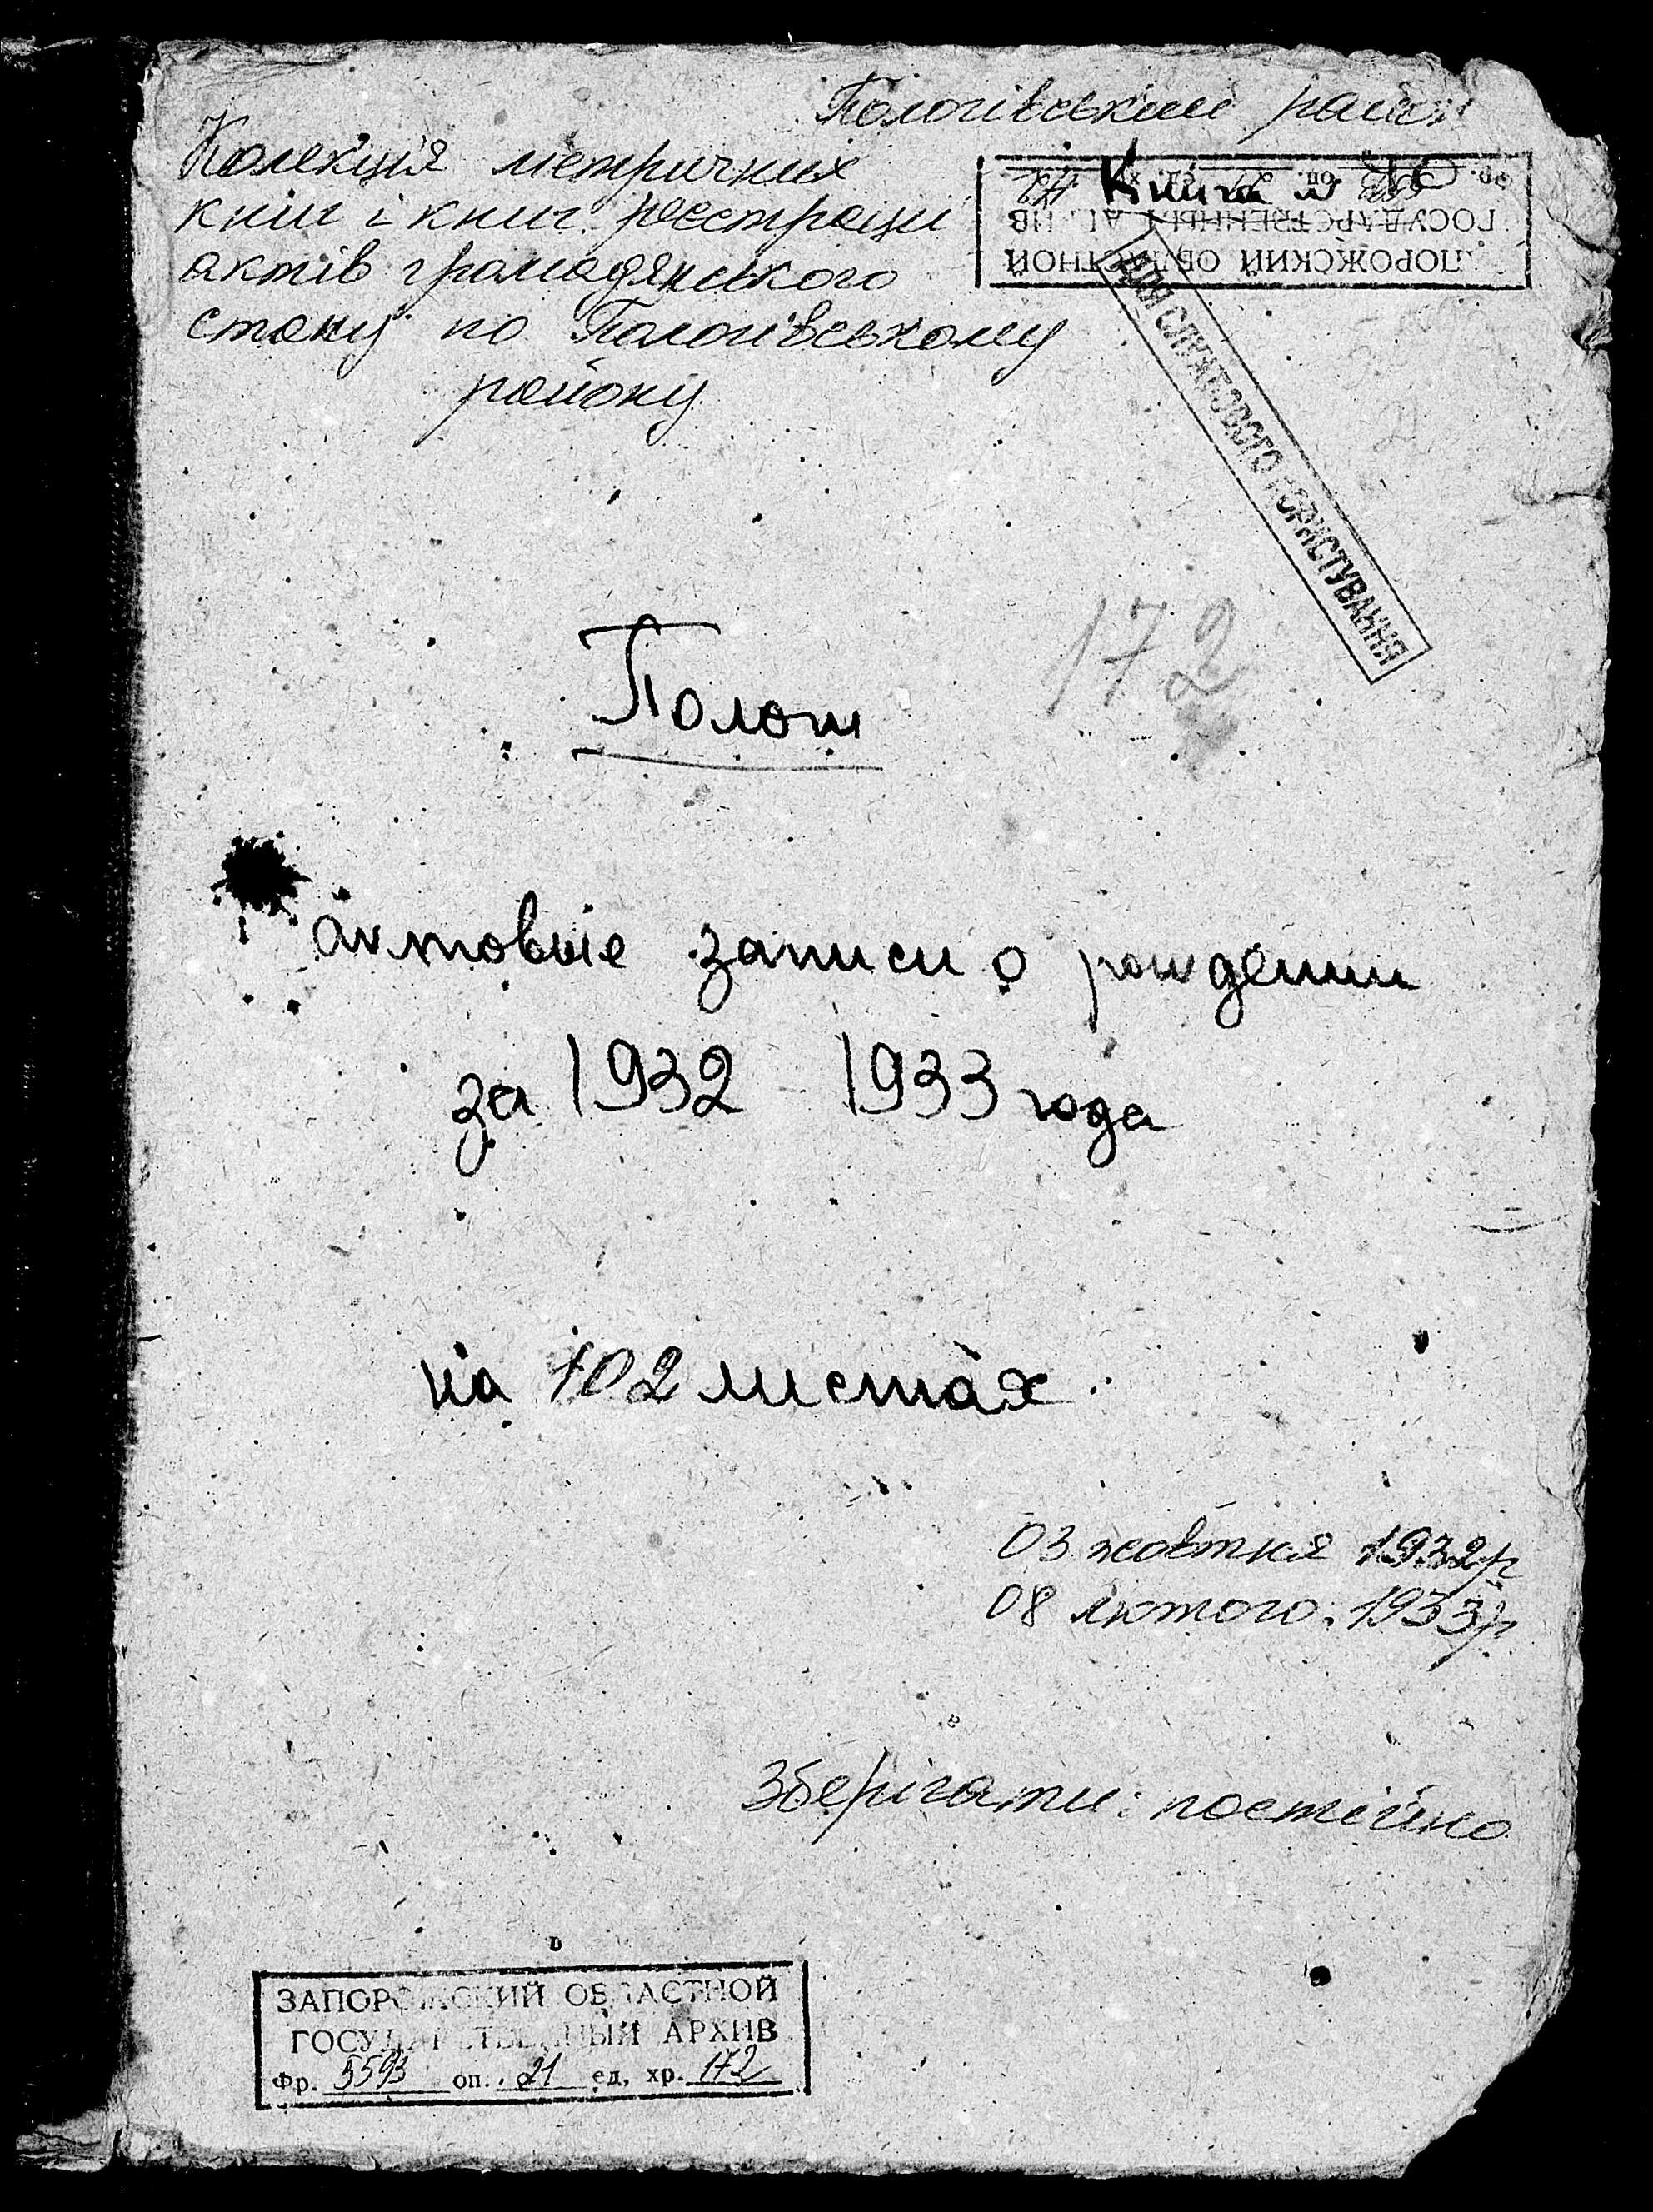 Пологівський район
Колекція метричних
книг і книг реєстрації
актів громадянського
стану по Пологівському
району
Книга №
ЗАПОРОЖСКИЙ ОБЛАСТНОЙ
ГОСУДАРСТВЕННЫЙ АРХИВ
ДЛЯ СЛУЖБОВОГО КОРИСТУВАННЯ
172
Пологи
актовые записи о рождении
за 1932 - 1933 года
на 102 листах
03 жовтня 1932р
08 лютого 1933р.
Зберігати: постійно
ЗАПОРОЖСКИЙ ОБЛАСТНОЙ
ГОСУДАРСТВЕННЫЙ АРХИВ
Фр. 5593 оп. 21 ед. хр. 172